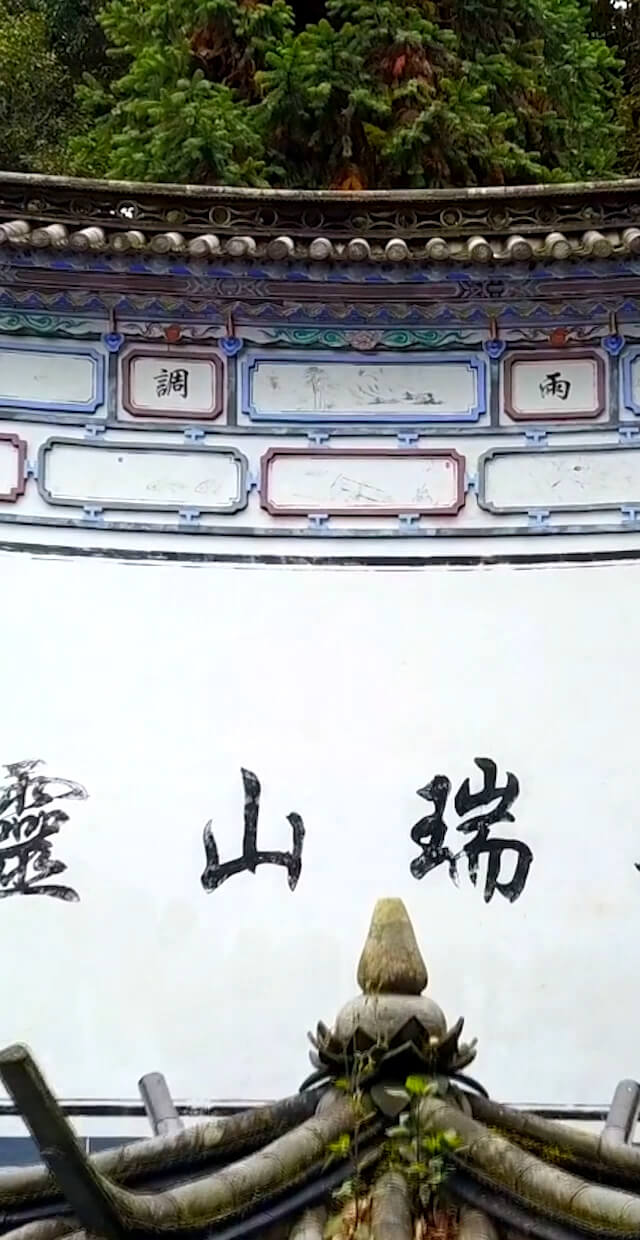 調 雨
靈山瑞